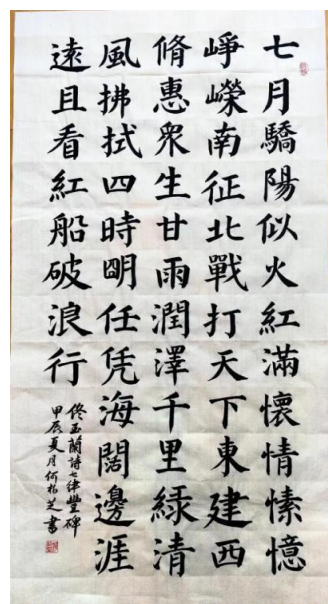 七月驕陽似火紅滿懷情愫憶
崢嶸南征北戰打天下東建西
脩惠衆生甘雨潤澤千里緑清
風拂拭四時朙任凭海闊邊涯
遠且看紅船破浪行
佟玉蘭詩七律豐碑
甲辰夏月何柏芝書